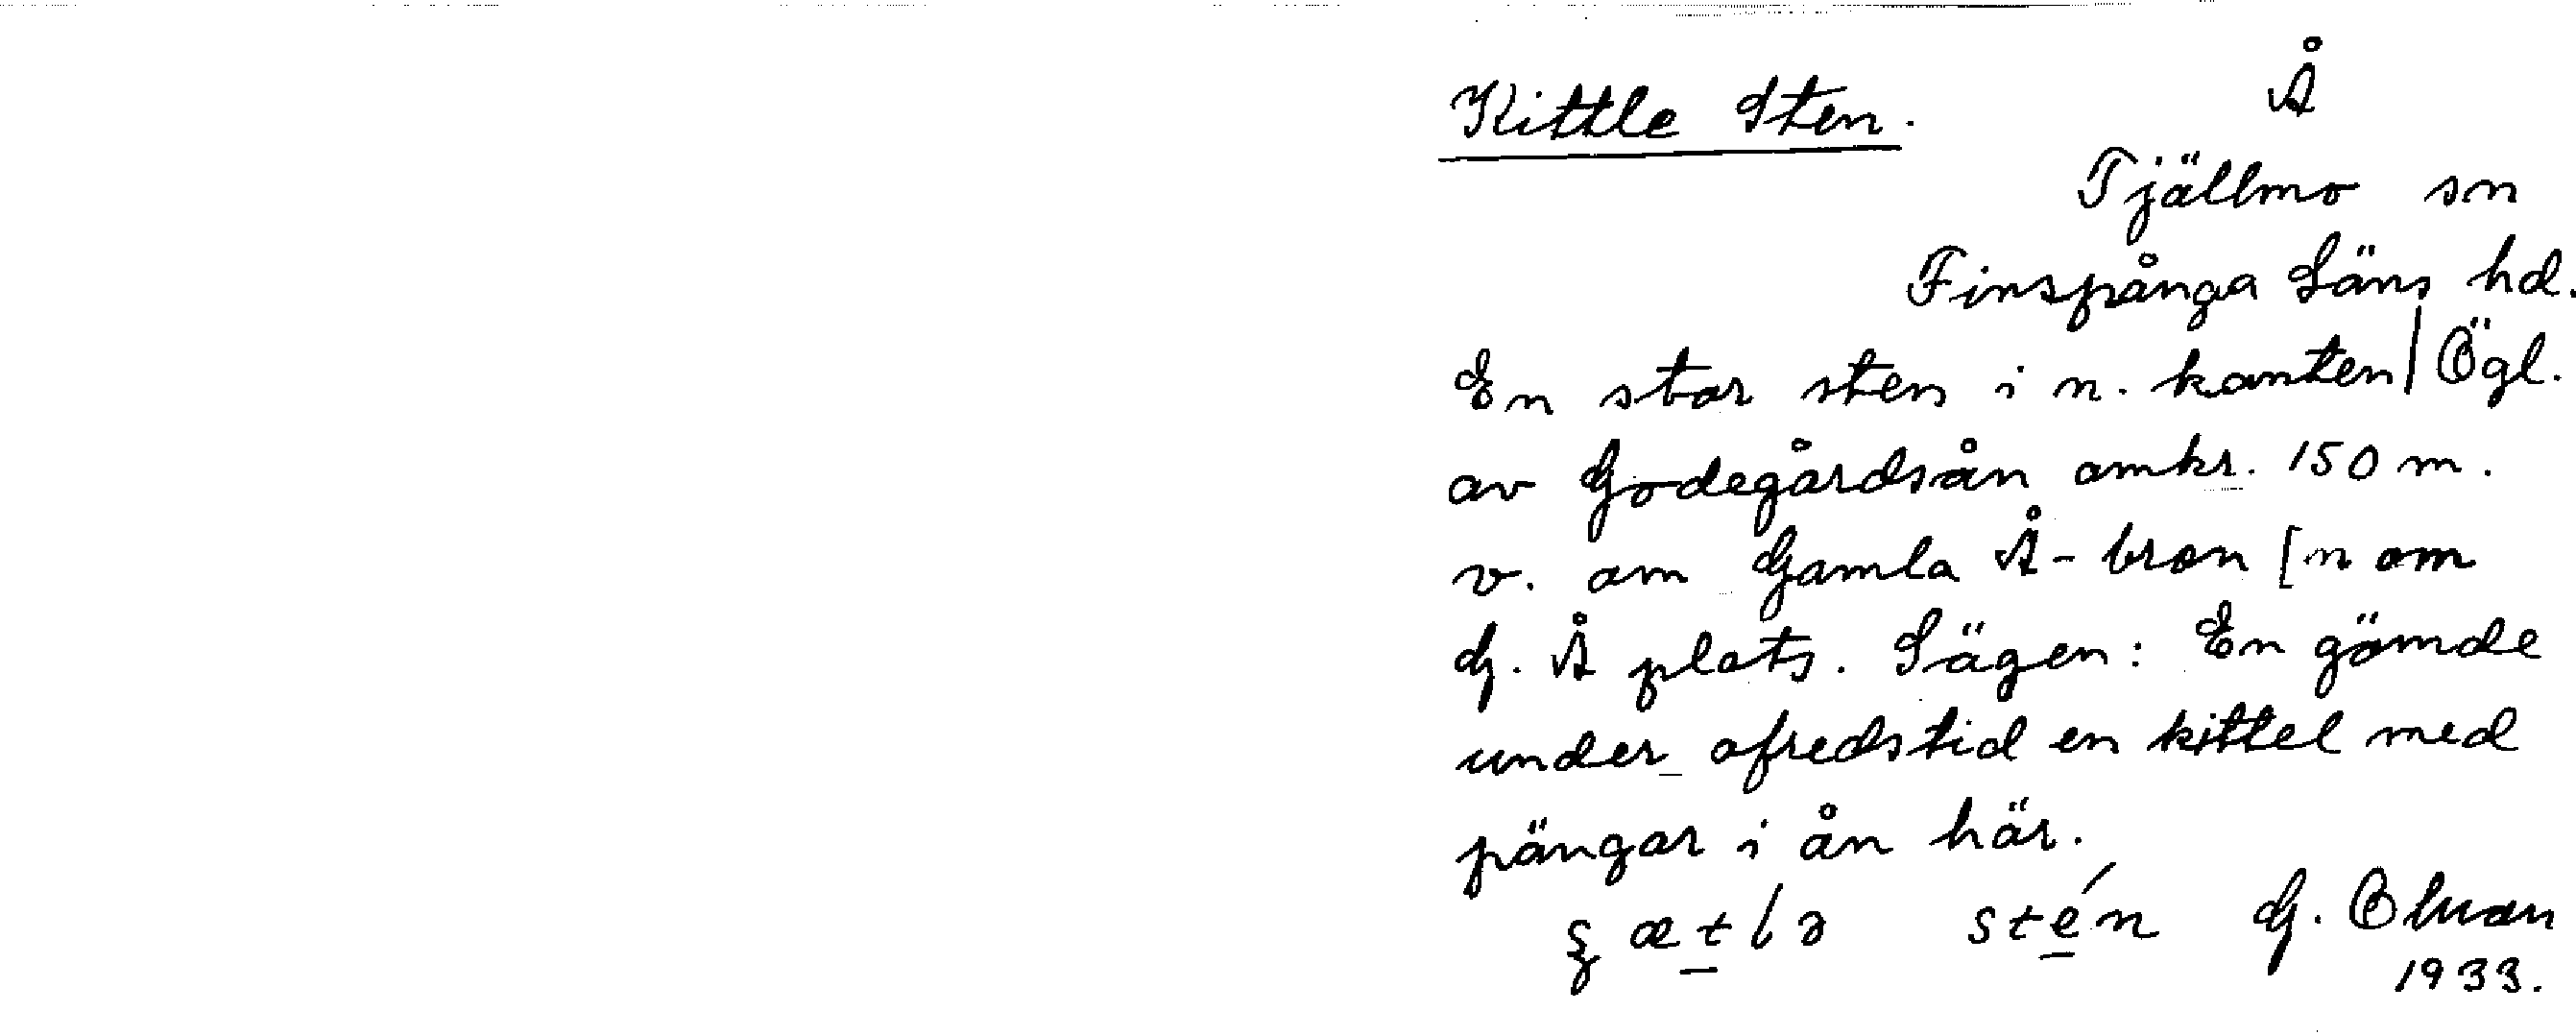 Kittle Sten.
Å
Tjällmo sn
Finspånga Läns hd.
En stor sten i n. kanten | Ögl.
av Godegårdsån omkr. 150 m.
v. om Gamla Å-bron [n om
G. Å plats. Sägen: En gömde
under ofredstid en kittel med
pängar i ån här.
stén G.
1933.